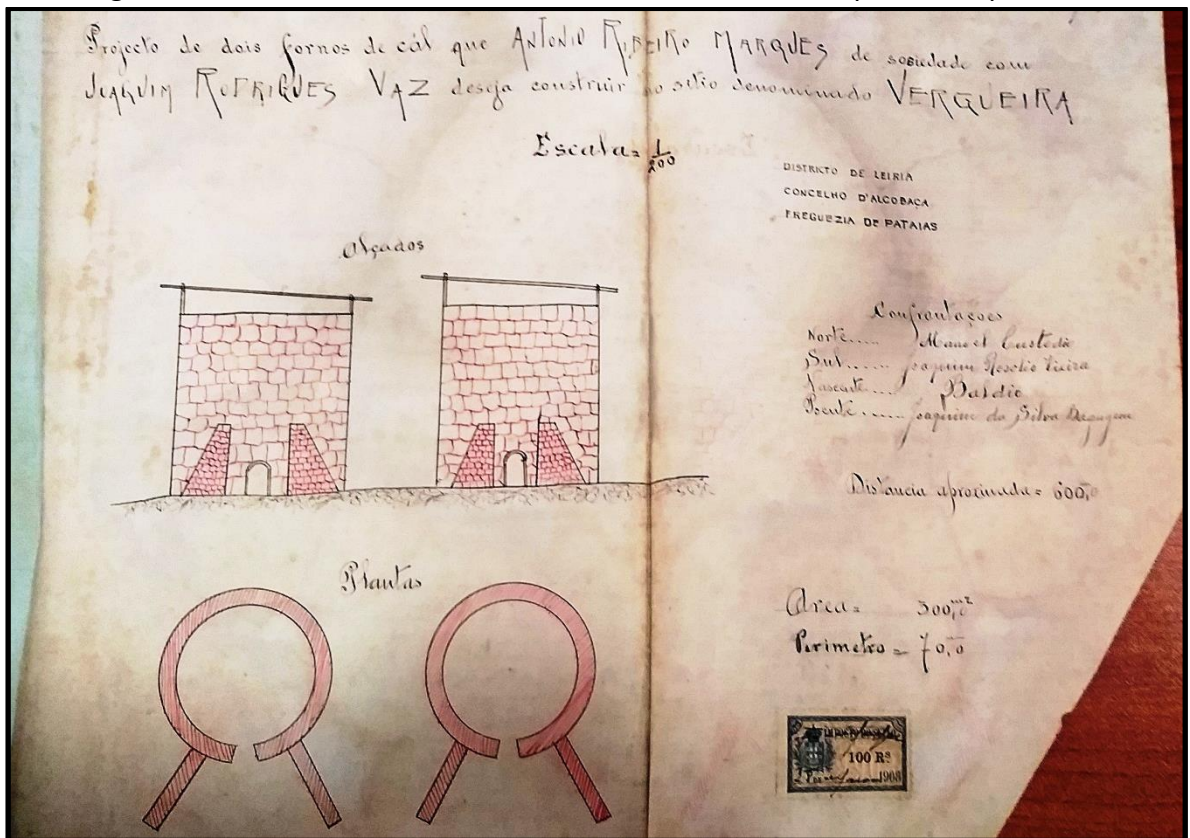 Projecto de dois fornos de cál que ANTONIO RIBEIRO MARQUES de sosiedade com
JOAQUIM RODRIGUES VAZ deseja construir no sitio denominado VERGUEIRA
Escala= 1/200
DISTRICTO DE LEIRIA
CONCELHO D'ALCOBAÇA
FREGUEZIA DE PATAIAS
Alçados
Confrontações
Norte..... Manoel Custodio
Sul...... Joaquim Vieira
Nascente..... Baldio
Poente...... Joaquim da Silva
Distancia aproximada= 600,0
Plantas
Area= 300,0 m2
Perimetro= 70,0
100 Rs
1908